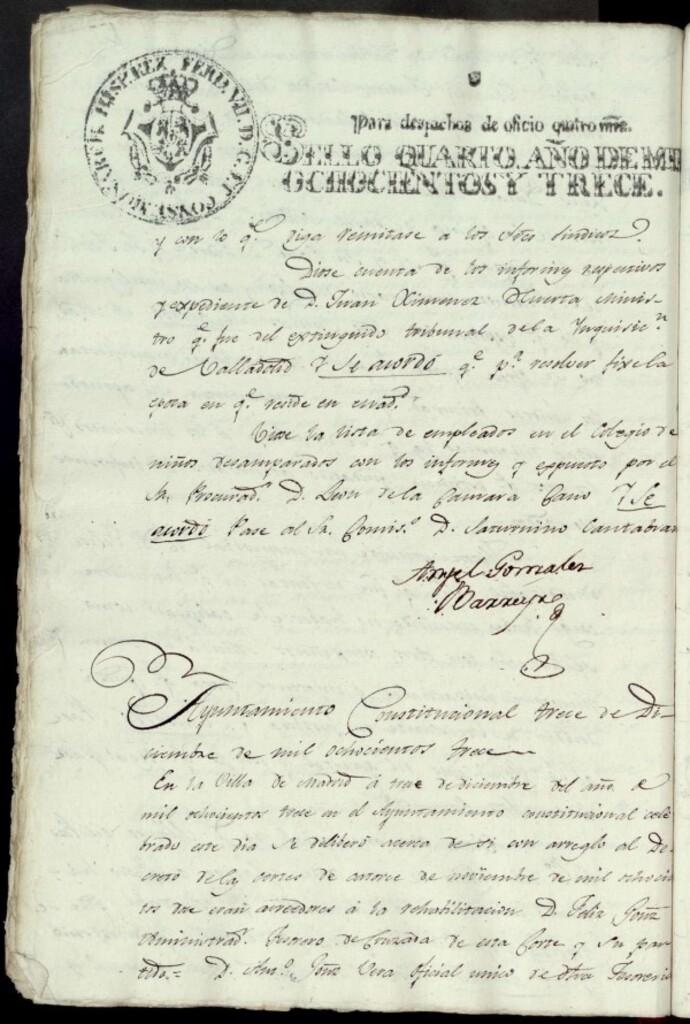 HISP. REX FERD. VII. D. G. ET CONST. MONARCH.
Para despachos de oficio quatro mrs.
SELLO QUARTO. AÑO DE MIL
OCHOCIENTOS Y TRECE.
y con lo q.e diga remitase a los Sres Sindicos.
Diose cuenta de los informes respectivos
y expediente de D. Juan Ximenez Huerta Minis-
tro q.e fue del extinguido tribunal de la Inquisic.n
de Valladolid Y Se acordó q.e p.a resolver fixe la
epoca en q.e reside en
Viose la lista de empleados en el Colegio de
niños desamparados con los informes y expuesto por el
Sr. Procurad.r D. Leon de la Camara Cano Y Se
acordó Pase al Sr. Comis.o D. Saturnino
Angel Gonzalez
Barreyro
Ayuntamiento Constitucional trece de Di-
ciembre de mil ochocientos trece
En la Villa de Madrid á trece de diciembre del año de
mil ochocientos trece en el Ayuntamiento constitucional cele
brado este dia se deliberó acerca de si con arreglo al De-
creto de las cortes de catorce de noviembre de mil ochocien
tos doce eran acreedores á la rehabilitacion D. Feliz Gonz
Administrad.r Tesorero de Cruzada de esta Corte y su par-
tido.= D. Ant.o Gonz Vera oficial unico de dha Tesoreria